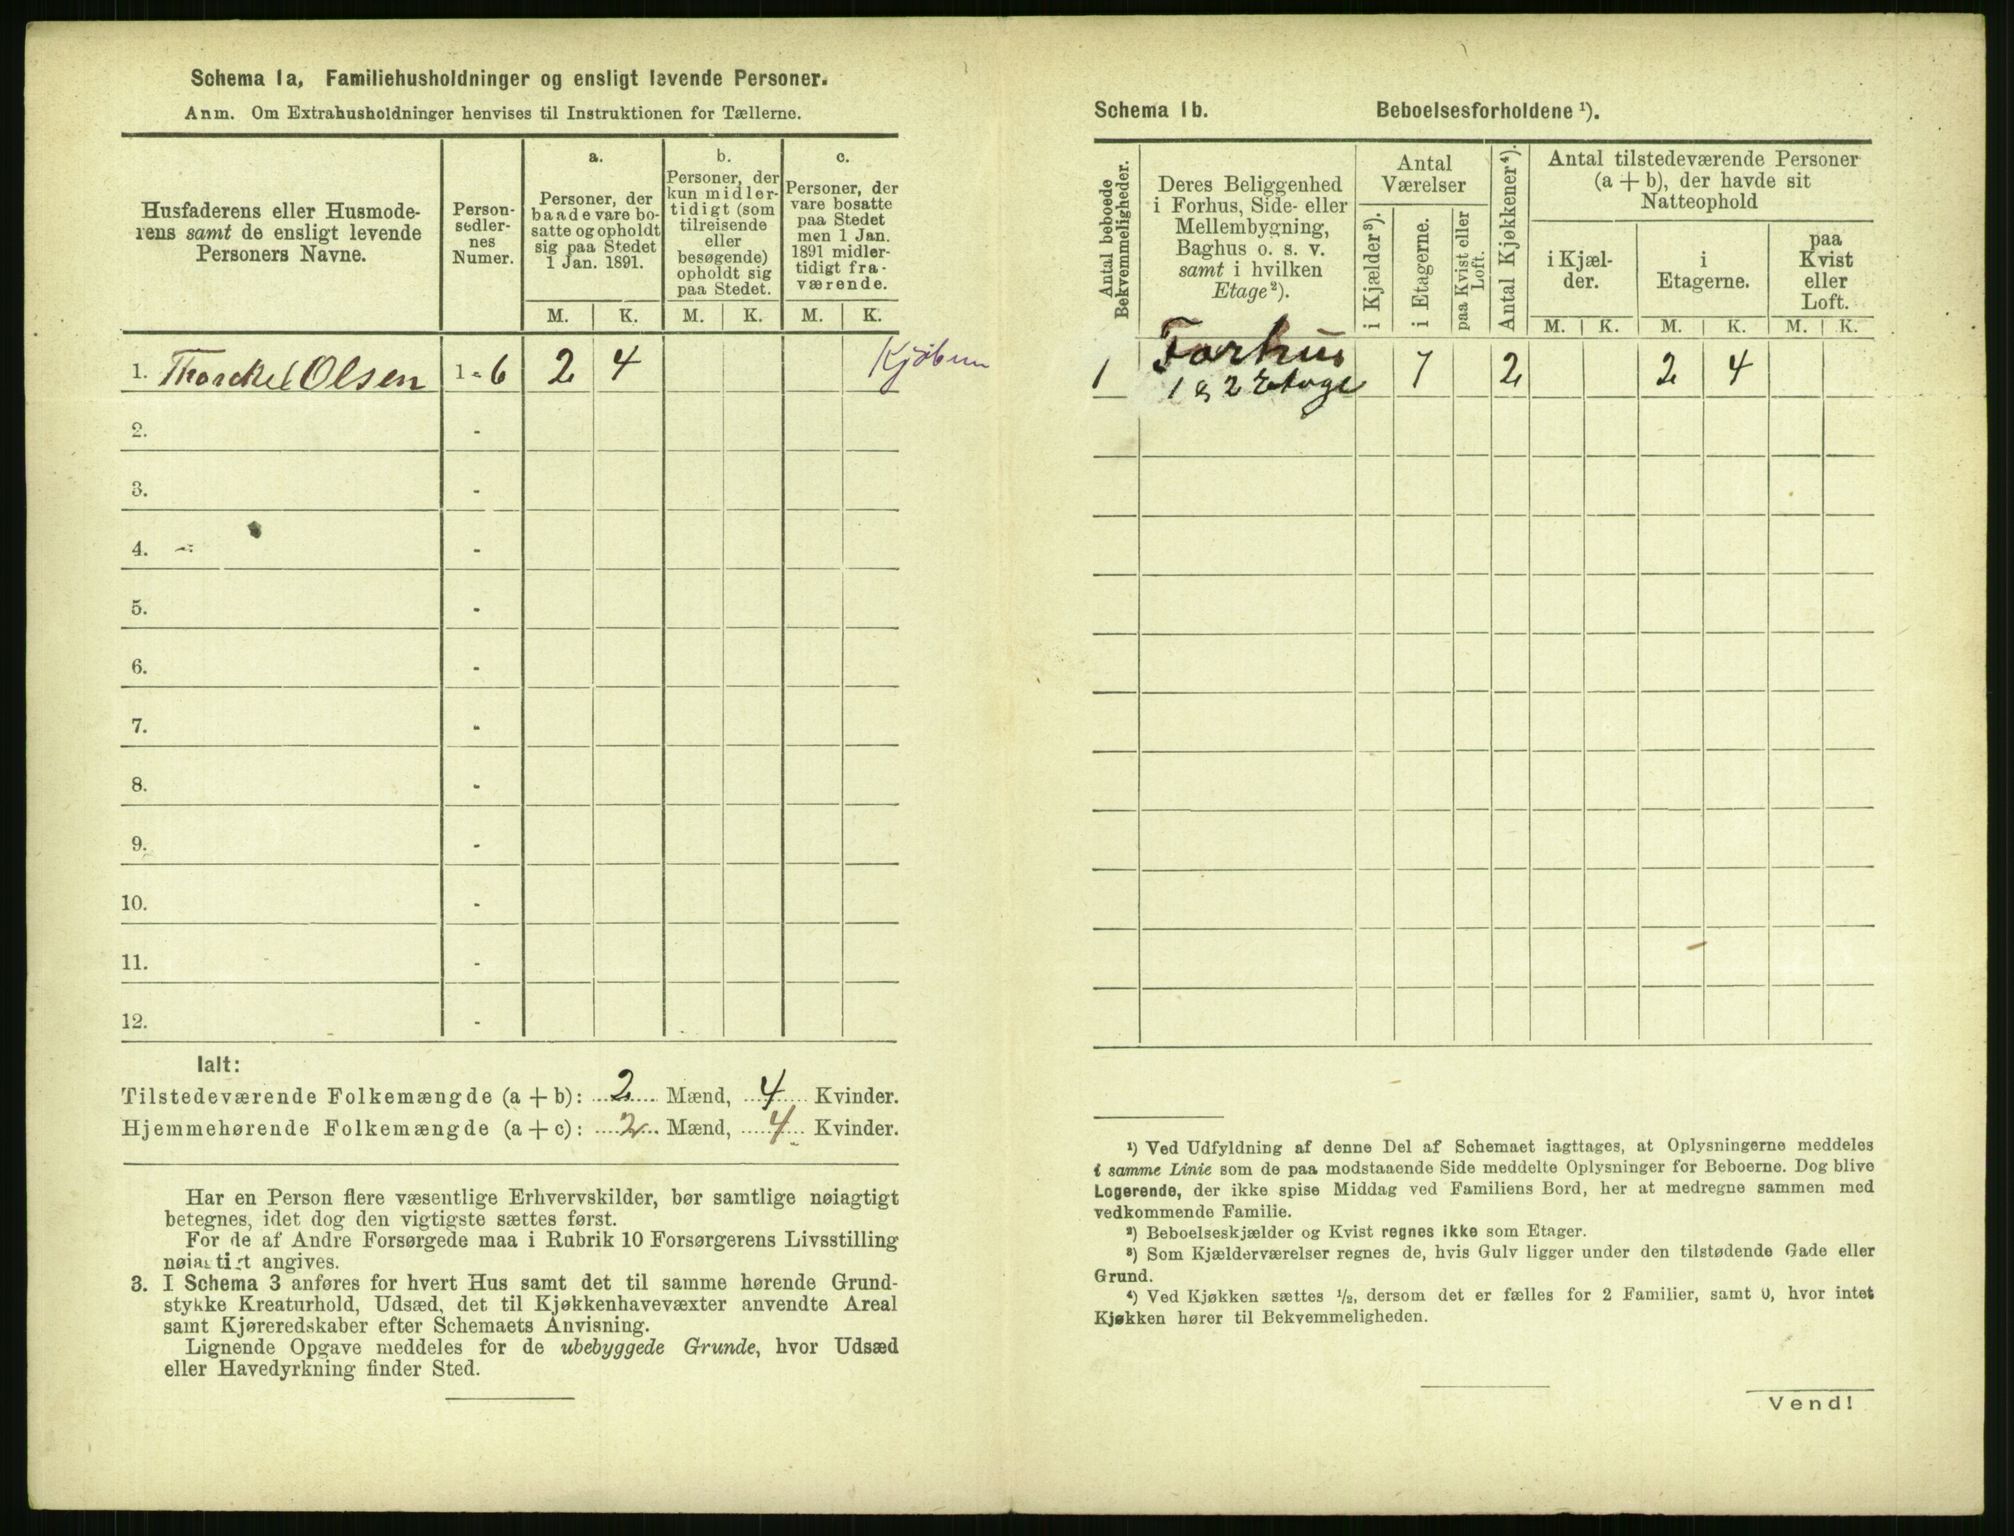 Schema 1a, Familiehusholdninger og ensligt levende Personer.
Anm. Om Extrahusholdninger henvises til Instruktionen for Tællerne.
Husfaderens eller Husmode-
rens samt de ensligt levende
Personers Navne.
Person-
sedler-
nes
Numer.
a.
Personer, der
baade vare bo-
satte og opholdt
sig paa Stedet
1 Jan. 1891.
b.
Personer, der
kun midler-
tidigt (som
tilreisende
eller
besøgende)
opholdt sig
paa Stedet.
c.
Personer, der
vare bosatte
paa Stedet
men 1 Jan.
1891 midler-
tidigt fra-
værende.
M. K. M. K. M. K.
1. Thorckel Olsen 1-6 2 4
2. -
3. -
4. -
5. -
6. -
7. -
8. -
9. -
10. -
11. -
12. -
Ialt:
Tilstedeværende Folkemængde (a + b): 2 Mænd, 4 Kvinder.
Hjemmehørende Folkemængde (a + c): 2 Mænd, 4 Kvinder.
Har en Person flere væsentlige Erhvervskilder, bør samtlige nøiagtigt
betegnes, idet dog den vigtigste sættes først.
For de af Andre Forsørgede maa i Rubrik 10 Forsørgerens Livsstilling
nøiagtigt angives.
3. I Schema 3 anføres for hvert Hus samt det til samme hørende Grund-
stykke Kreaturhold, Udsæd, det til Kjøkkenhavevæxter anvendte Areal
samt Kjøreredskaber efter Schemaets Anvisning.
Lignende Opgave meddeles for de ubebyggede Grunde, hvor Udsæd
eller Havedyrkning finder Sted.
Schema 1b. Beboelsesforholdene ¹).
Antal beboede
Bekvemmeligheder.
Deres Beliggenhed
i Forhus, Side- eller
Mellembygning,
Baghus o. s. v.
samt i hvilken
Etage ²).
Antal
Værelser
i Kjælder ³).
i Etagerne.
paa Kvist eller
Loft.
Antal Kjøkkener ⁴).
Antal tilstedeværende Personer
(a + b), der havde sit
Natteophold
i Kjæl-
der.
i
Etagerne.
paa
Kvist
eller
Loft.
M. K. M. K. M. K.
1 Forhus 7 2 2 4
1 & 2 Etage
¹) Ved Udfyldning af denne Del af Schemaet iagttages, at Oplysningerne meddeles
i samme Linie som de paa modstaaende Side meddelte Oplysninger for Beboerne. Dog blive
Logerende, der ikke spise Middag ved Familiens Bord, her at medregne sammen med
vedkommende Familie.
²) Beboelseskjælder og Kvist regnes ikke som Etager.
³) Som Kjælderværelser regnes de, hvis Gulv ligger under den tilstødende Gade eller
Grund.
⁴) Ved Kjøkken sættes ½, dersom det er fælles for 2 Familier, samt 0, hvor intet
Kjøkken hører til Bekvemmeligheden.
Vend!